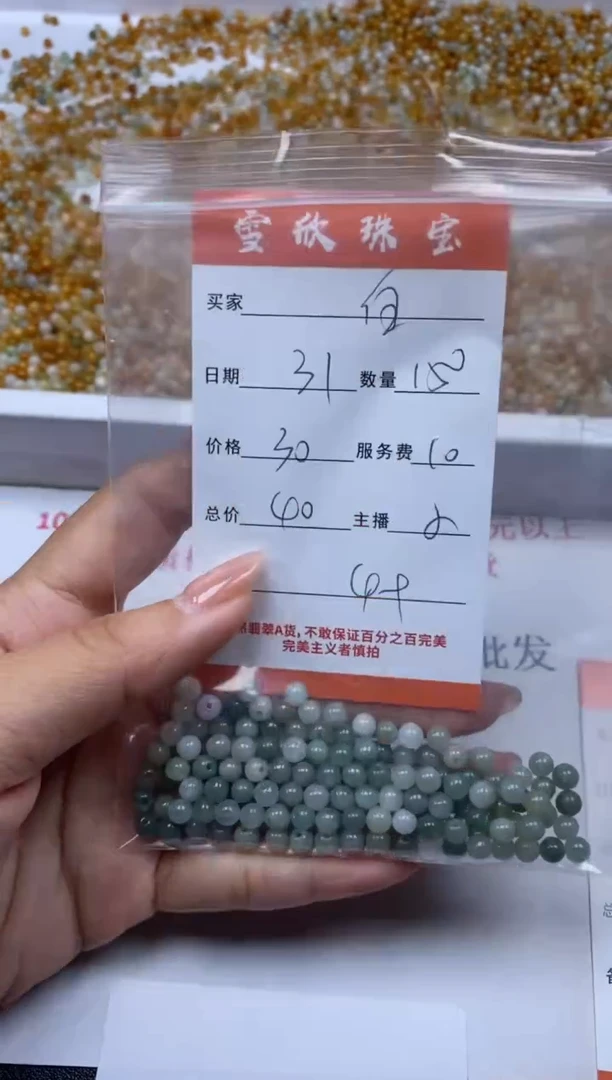 雪欣珠宝
买家
日期 31 数量 150
价格 30 服务费 10
总价 40 主播
翡翠A货,不敢保证百分之百完美
完美主义者慎拍
10
元以上
批发